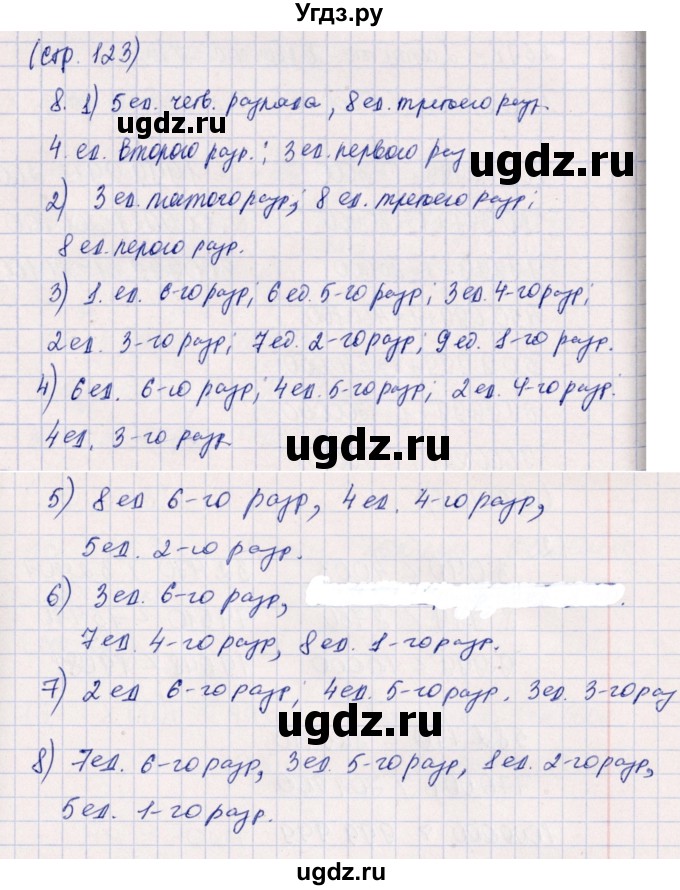 Угдз.ру
(стр. 123)
8. 1) 5 ед. четв. разряда, 8 ед. третьего разр.
4. ед. второго разр.; 3 ед. первого раз
2) 3 ед. пятого разр; 8 ед. третьего разр;
8 ед. перого разр.
3) 1. ед. 6-го разр; 6 ед. 5-го разр; 3 ед. 4-го разр;
2 ед. 3-го разр; 7 ед. 2-го разр; 9 ед. 1-го разр.
4) 6 ед. 6-го разр; 4 ед. 5-го разр; 2 ед. 4-го разр.
4 ед. 3-го разр.
5) 8 ед 6-го разр, 4 ед. 4-го разр,
5 ед. 2-го разр.
6) 3 ед. 6-го разр,
7 ед. 4-го разр, 8 ед. 1-го разр.
7) 2 ед 6-го разр; 4 ед. 5-го разр. 3 ед. 3-го раз
8) 7 ед. 6-го разр, 3 ед. 5-го разр, 1 ед. 2-го разр,
5 ед. 1-го разр.
ugdz.ru
ugdz.ru
ugdz.ru
ugdz.ru
ugdz.ru
ugdz.ru